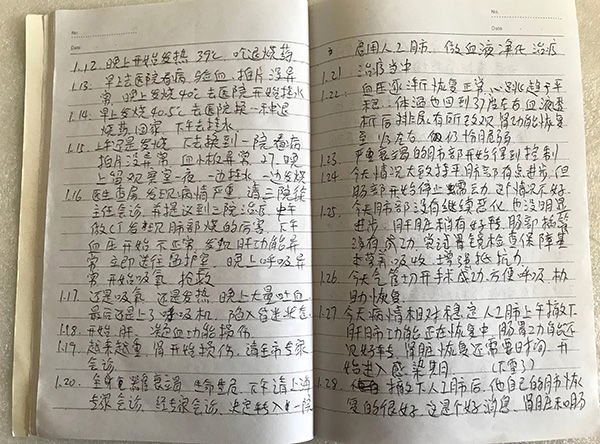 No:
Date:
1.12. 晚上开始发热 39℃. 吃退烧药.
1.13. 早上去医院看病. 验血. 拍片没异
常. 晚上发烧40℃去医院开始挂水
1.14. 早上发烧40.5℃去医院换一种退
烧药回家. 下午去挂水.
1.15. 上午还是发烧. 下午换到一院看病
拍片没异常. 血小板异常 27. 晚
上留观察室一夜. 一边挂水. 一边发烧
1.16. 医生查房发现病情严重. 请三院
主任会诊. 并提议到三院治疗. 中午
做CT发现肺部烧的厉害. 下午
血压开始不正常. 发现肝功能异
常. 立即送往监护室. 晚上呼吸异
常开始吸氧. 抢救
1.17. 还是吸氧. 还是发热. 晚上大量吐血
最后还是上了呼吸机. 陷入昏迷状态
1.18. 开始肝. 凝血功能损伤.
1.19. 越来越重. 肾开始损伤. 请全市专家
会诊.
1.20. 全身器官衰竭. 下午请上海
专家会诊. 经专家会诊. 决定转入一院
No.
Date
启用人工肺. 做血液净化治疗
1.21. 治疗当中
1.22. 血压逐渐恢复正常. 心跳趋于平
稳. 体温也回到37度左右. 血液透
析后排尿有所改观. 肾功能恢复
至1/3左右. 仍脆弱
1.23. 严重衰竭的肺部开始得到控制
1.24. 今天情况大致持平. 肺部有点进步. 但
肠部开始停止蠕动. 这个情况不好.
1.25. 今天肺部没有继续恶化. 也没明显
进步. 肝脏稍有好转. 肠部插管
没有成功. 尝试胃镜检查保障基
本营养吸收. 增强抵抗力
1.26. 今天气管切开手术成功. 方便呼吸机
助恢复.
1.27. 今天病情相对稳定. 人工肺上午撤下
肝肺功能正在恢复中. 肠胃功能还
见好转. 肾脏恢复还需要时间. 开
始进入感染期. (下雪了)
1.28. 撤下人工肺后. 他自己的肺恢
复的很好. 这是个好消息. 肾脏和肠